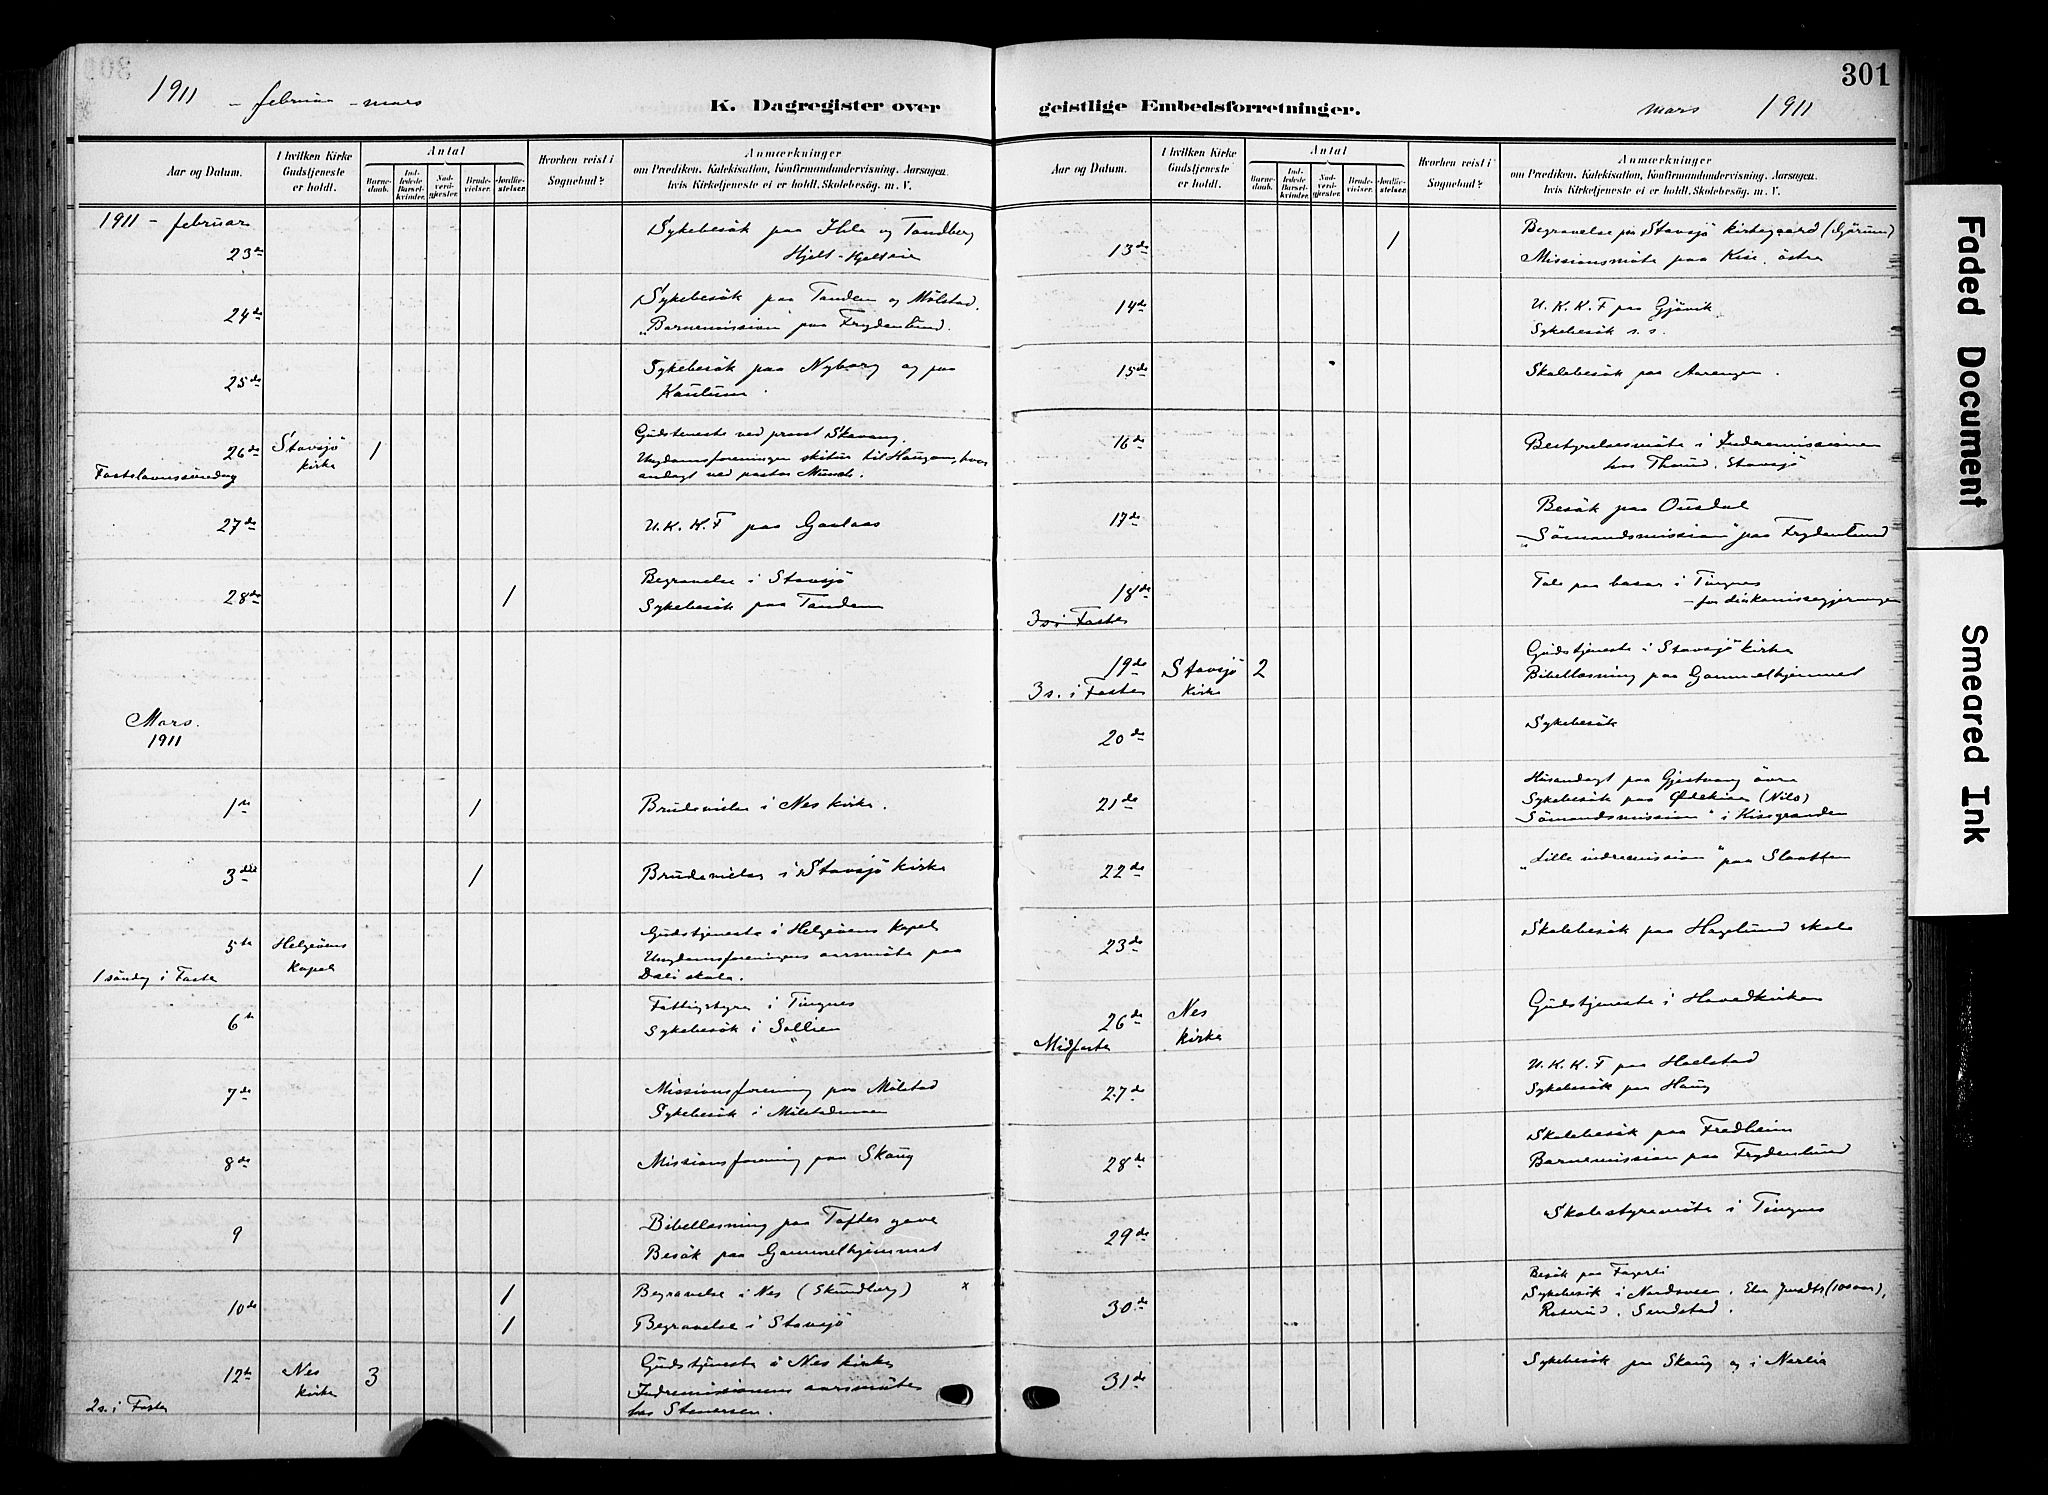 1911 - februar - mars
K. Dagregister over
Aar og Datum.
I hvilken Kirke Gudstjeneste er holdt.
Antal
Barnedaab.
Indledede Barselkvinder.
Nadverdgjester.
Brudevielser.
Jordfæstelser.
Hvorhen reist i Sognebud?
Anmærkninger
om Prædiken, Katekisation, Konfirmandundervisning. Aarsagen,
hvis Kirketjeneste ei er holdt. Skolebesøg. m. V.
1911 - februar
23de
Sykebesök paa Hile og Tandberg
Hjelt - Hjelteie
24de
Sykebesök paa Tanden og Mölstad.
"Barnemission" paa Frydenlund.
25de
Sykebesök paa Nyborg og paa
26de
Stavsjö kirke
1
Fastelavnssöndag
Gudsteneste ved provst Skavang.
Ungdomsforeningen skitur til Haugom, hvor
andagt ved pastor Munch.
27de
U. K. K. F paa Gaalaas
28de
1
Begravelse i Stavsjö
Sykebesök paa Tanden
Mars.
1911
1ste
1
Brudevielse i Nes kirke.
3die
1
Brudevielse i Stavsjö kirke
5te
1 söndag i Faste
Helgöens Kapel
Gudstjeneste i Helgöens Kapel
Ungdomsforeningens aarsmöte paa
Dæli skole.
6te
Fattigstyre i Tingnes
Sykebesök i Sollien
7de
Missionsforening paa Mölstad
Sykebesök i Mölstadmoen
8de
Missionsforening paa Skaug
9
Bibellæsning paa Toftes gave
Besök paa Gammelhjemmet
10de
1
Begravelse i Nes (Skundberg) x
1
Begravelse i Stavsjö
12te
2 s. i Faste
Nes kirke
3
Gudstjeneste i Nes kirke
Indremissionens aarsmöte
hos Stenersen.
301
geistlige Embedsforretninger.
mars 1911
Aar og Datum.
I hvilken Kirke Gudstjeneste er holdt.
Antal
Barnedaab.
Indledede Barselkvinder.
Nadverdgjester.
Brudevielser.
Jordfæstelser.
Hvorhen reist i Sognebud?
Anmærkninger
om Prædiken, Katekisation, Konfirmandundervisning. Aarsagen,
hvis Kirketjeneste ei er holdt. Skolebesøg. m. V.
13de
1
Begravelse paa Stavsjö kirkegaard (Gjörum)
Missionsmöte paa Kise, östre
14de
U. K. K. F paa Gjövik
Sykebesök s. s.
15de
Skolebesök paa Aarengen.
16de
Bestyrelsesmöte i Indremissionen
hos Thorud, Stavsjö
17de
Besök paa Ousdal
"Sömandsmission" paa Frydenlund
18de
3 s i Faste
Tale paa basar i Tingnes
- for diakonissegjerningen
19de
3 s. i Faste
Stavsjö Kirke
2
Gudstjeneste i Stavsjö kirke
Bibellæsning paa Gammelhjemmet
20de
Sykebesök
21de
Husandagt paa Gjestvang övre
Sykebesök paa Ødekien (Nils)
Sömandsmission" i Kisegranden
22de
"Lille indremission" paa Slaatten
23de
Skolebesök paa Hagelund skole
26de
Midfaste
Nes kirke
Gudstjeneste i Hovedkirken
27de
U. K. K. F paa Hoelstad
Sykebesök paa Haug
28de
Skolebesök paa Fredheim
Barnemission paa Frydenlund
29de
Skolestyremöte i Tingnes
30de
Besök paa Fagerli
Sykebesök i Nordsveen. (100 aar),
Roterud, Sendstad.
31de
Sykebesök paa Skaug og i Nerlia
Faded Document
Smeared Ink